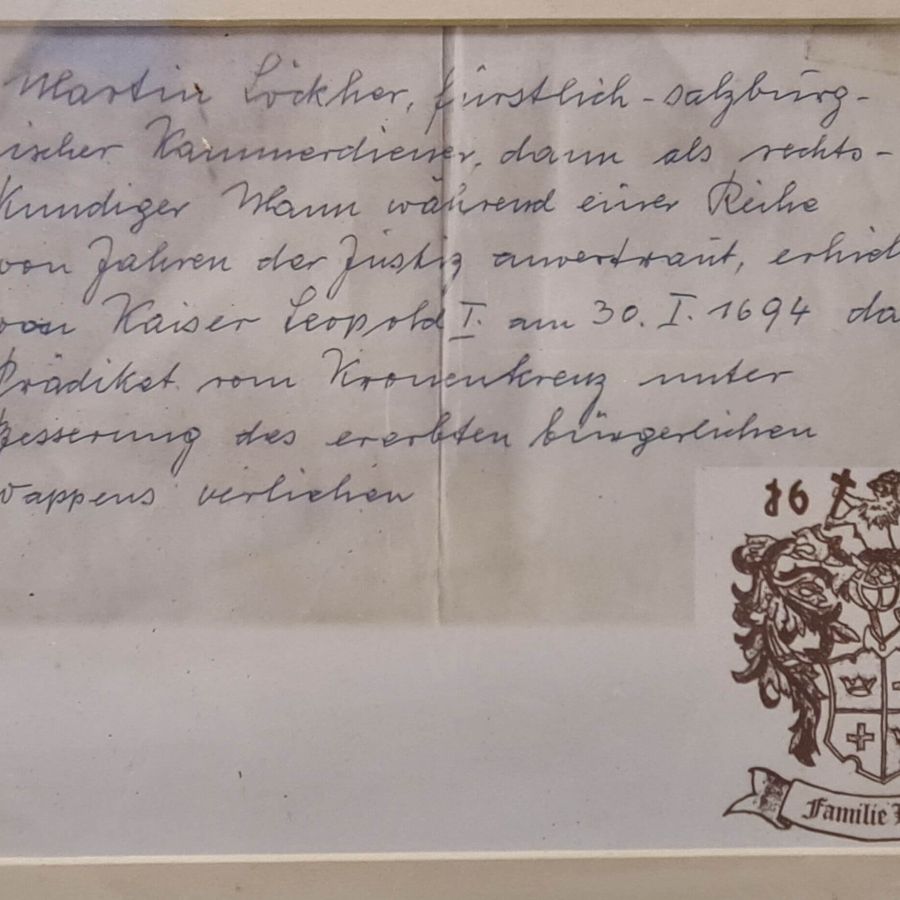 Martin Löckher, fürstlich-salzburg-
ischer Kammerdiener, dann als rechts-
kundiger Mann während einer Reihe
von Jahren der Justiz anvertraut, erhiel
von Kaiser Leopold I. am 30. I. 1694 da
Prädikat vom Kronenkreuz unter
Besserung des ererbten bürgerlichen
Wappens verliehen
16
Familie